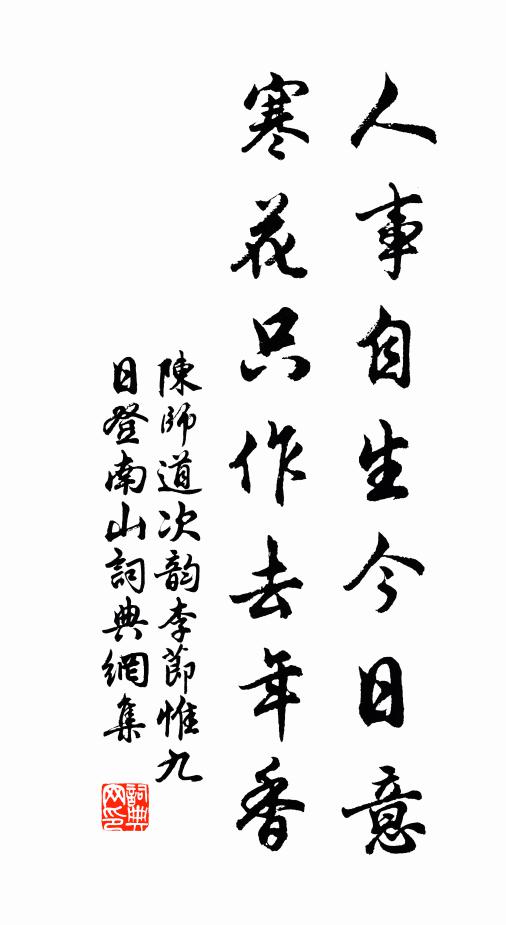 人事自生今日意
寒花只作去年香
陳師道次韵李節惟九
日登南山詞典網集
詞典网印